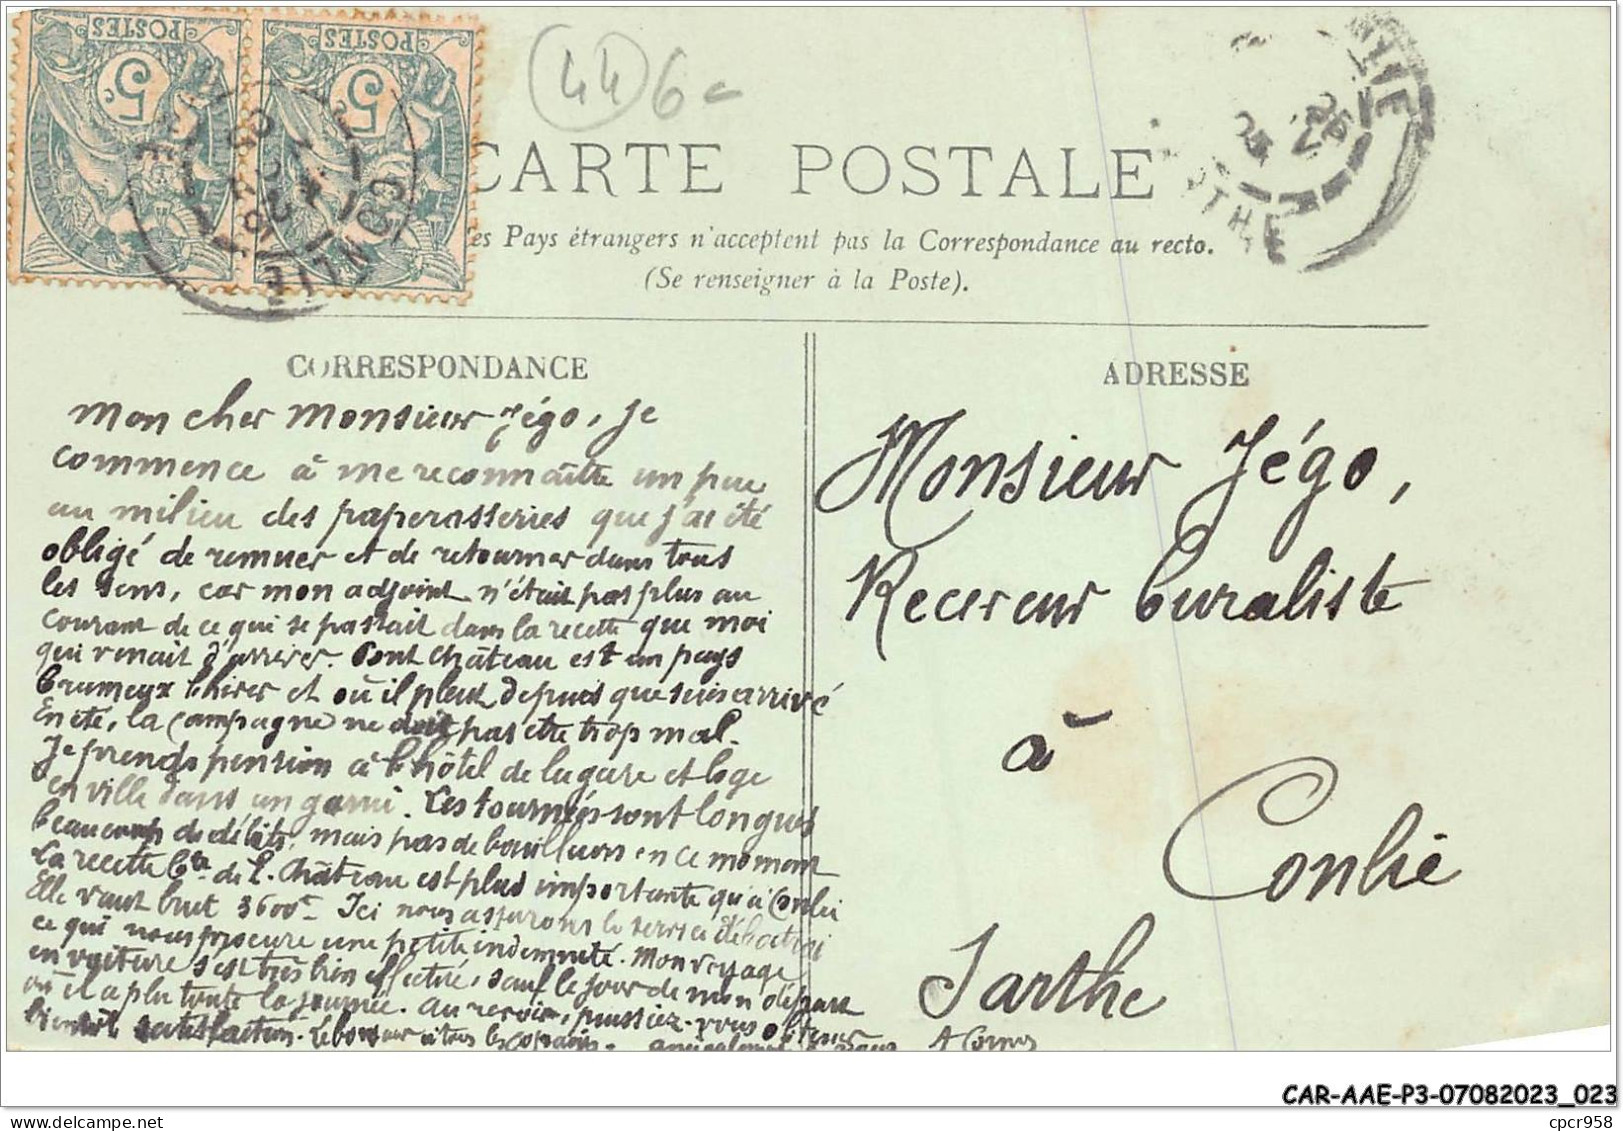 POSTES POSTES
5c 5c
44 6-
CARTE POSTALE
es Pays étrangers n'acceptent pas la Correspondance au recto.
(Se renseigner à la Poste).
CORRESPONDANCE
Mon cher Monsieur Jégo, je
commence à me reconnaître un peu
au milieu des paperasseries que j'ai été
obligé de remuer et de retourner dans tous
les sens, car mon adjoint n'était pas plus au
courant de ce qui se passait dans la recette que moi
qui venait d'arriver. Pont Château est un pays
brumeux l'hiver et où il pleut depuis que suis arrivé
En été, la campagne ne doit pas etre trop mal.
Je prends pension à l'hôtel de la gare et loge
en ville dans un garni. Les tournées sont longues
beaucoup de débits, mais pas de bouilleurs en ce moment
La recette Bte de P. Château est plus importante qu'à Conlie
Elle vaut brut 3600f. Ici nous assurons le service
ce qui nous procure une petite indemnité. Mon voyage
en voiture s'est très bien effectué, sauf le jour de mon départ
où il a plu toute la journée. Au revoir, puissiez-vous obtenir
bientôt satisfaction. Le bonjour à tous les copains.
ADRESSE
Monsieur Jégo,
Receveur buraliste
à
Conlie
Sarthe
CAR-AAE-P3-07082023_023
cpcr958